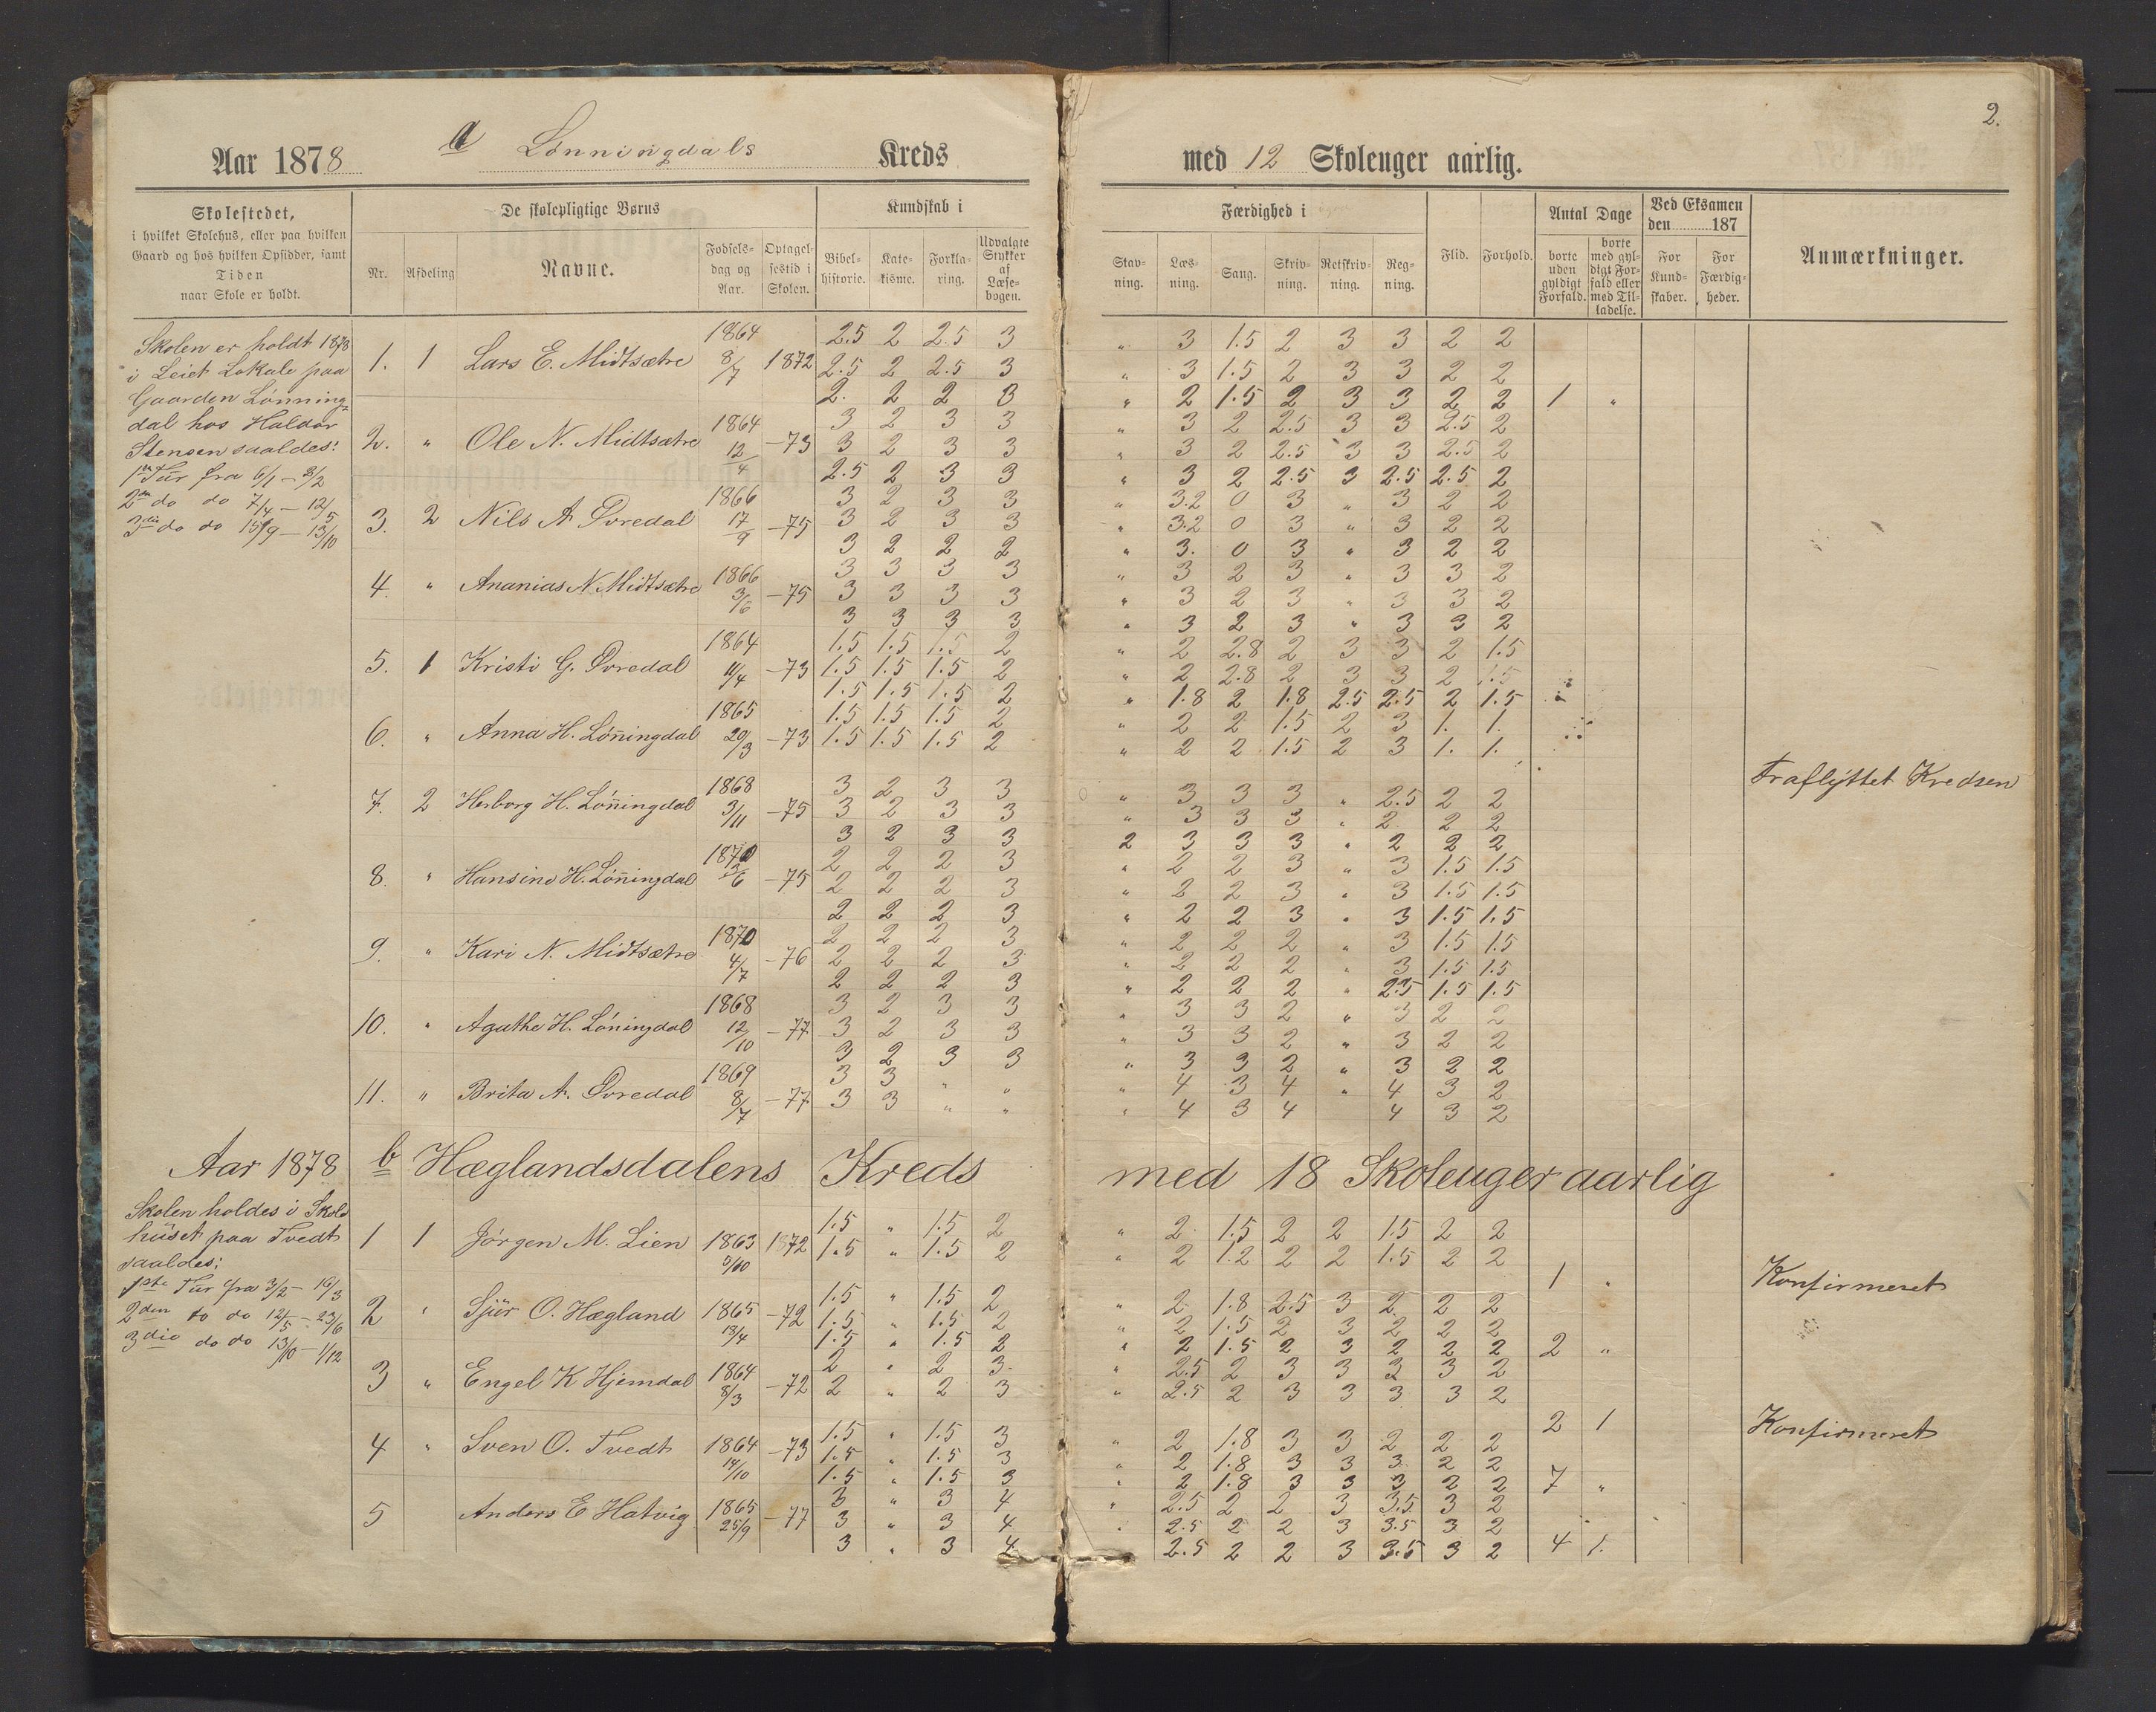 2.
Aar 1878 a Lønningdals Kreds med 12 Skoleuger aarlig.
Skolestedet,
i hvilket Skolehus, eller paa hvilken
Gaard og hos hvilken Opsidder, samt
Tiden
naar Skole er holdt.
De skolepligtige Børns
Nr. Afdeling Navne. Fødsels-dag og Aar. Optagelsestid i Skolen.
Kundskab i
Bibel-historie. Kate-kisme. Forkla-ring. Udvalgte Stykker af Læse-bogen.
Færdighed i
Stav-ning. Læs-ning. Sang. Skriv-ning. Retskriv-ning. Reg-ning.
Flid. Forhold.
Antal Dage
borte uden gyldigt Forfald. borte med gyl-digt For-fald eller med Til-ladelse.
Ved Eksamen den 187
For Kund-skaber. For Færdig-heder.
Anmærkninger.
Skolen er holdt 1878
i Leiet Lokale paa
Gaarden Lønning-
dal hos Haldor
Stensen saaledes:
1ste Tur fra 6/1 – 2/2
2den do do 7/4 – 12/5
3die do do 15/9 – 13/10
2.5 2 2.5 3 " 3 1.5 2 3 3 2 2
1. 1 Lars E. Midtsætre 1864 8/7 1872 2.5 2 2.5 3 " 3 1.5 2 3 3 2 2
2. 2 2 3 " 2 1.5 2 3 3 2 2 1 "
3 2 3 3 " 3 2 2.5 3 3 2.5 2
2. " Ole N. Midtsætre 1864 12/4 –73 3 2 3 3 " 3 2 2.5 3 3 2.5 2
2.5 2 3 3 " 3 2 2.5 3 2.5 2.5 2
3 2 3 3 " 3.2 0 3 " 3 2 2
3. 2 Nils A. Øvredal 1866 17/9 –75 3 2 3 3 " 3.2 0 3 " 3 2 2
3 2 2 2 " 3. 0 3 " 3 2 2
3 3 3 3 " 3 2 3 " 3 3 2
4. " Ananias N. Midtsætre 1866 3/6 –75 3 3 3 3 " 3 2 3 " 3 3 2
3 3 3 3 " 3 2 3 " 3 3 2
1.5 1.5 1.5 2 " 2 2.8 2 3 3 2 1.5
5. 1 Kristi G. Øvredal 1864 11/4 –73 1.5 1.5 1.5 2 " 2 2.8 2 3 3 2 1.5
1.5 1.5 1.5 2 " 1.8 2 1.8 2.5 2.5 2 1.5
1.5 1.5 1.5 2 " 2 2 1.5 2 3 1. 1.
6. " Anna H. Lønningdal 1865 20/3 –73 1.5 1.5 1.5 2 " 2 2 1.5 2 3 1. 1.
Fraflyttet Kredsen
3 2 3 3 " 3 3 3 " 2.5 2 2
7. 2 Herborg H. Lønningdal 1868 3/11 –75 3 2 3 3 " 3 3 3 " 2 2 2
3 2 3 3 2 3 3 3 " 2 2 2
2 2 2 3 " 2 2 3 " 3 1.5 1.5
8. " Hansine H. Lønningdal 1870 2/6 –75 2 2 2 3 " 2 2 3 " 3 1.5 1.5
2 2 2 3 " 2 2 3 " 3 1.5 1.5
2 2 2 3 " 2 2 2 " 3 1.5 1.5
9. " Kari N. Midtsætre 1870 4/7 –76 2 2 2 3 " 2 2 2 " 3 1.5 1.5
2 2 2 3 " 2 2 2 " 2.5 1.5 1.5
3 2 3 3 " 3 3 2 " 3 2 2
10. " Agathe H. Lønningdal 1868 12/10 –77 3 2 3 3 " 3 3 2 " 3 2 2
3 2 3 3 " 3 3 2 " 3 2 2
3 3 " " " 4 3 4 " 4 3 2
11. " Brita A. Øvredal 1869 8/7 –77 3 3 " " " 4 3 4 4 3 2
Aar 1878 b Hæglandsdalens Kreds med 18 Skoleuger aarlig
Skolen holdes i Skole
huset paa Tvedt
saaledes:
1ste Tur fra 3/2 – 16/3
2den do do 12/5 – 23/6
3die do do 13/10 – 1/12
1.5 " 1.5 2 " 2 1.5 2 2 1.5 2 2
1 1 Jørgen M. Lien 1863 1872 1.5 " 1.5 2 " 2 1.2 2 2 1.5 2 2
1 " Konfirmeret
1.5 " 1.5 2 " 2 1.8 2.5 3 2 2 2
2 " Sjur O. Hægland 1865 13/4 –72 1.5 " 1.5 2 " 2 1.5 2 3 2 2 2
1.5 " 1.5 2 " 2 1.5 2 3 2 2 2 2 "
2 " 2 3 " 2.5 2 3 3 3 3 2
3 " Engel K Hjemdal 1864 8/3 –72 2 " 2 3 " 2.5 2 3 3 3 3 2
2 1 Konfirmeret
1.5 " 1.5 3 " 2 1.8 3 3 2 2 2
4 " Sven O. Tvedt 1864 14/10 –73 1.5 " 1.5 3 " 2 1.8 3 3 3 2 2
1.5 " 1.5 3 " 2 1.8 3 3 3 2 2 7 "
3 " 3 4 " 2.5 2 2 3 3.5 3 2
5 Anders E Hatvig 1865 25/9 –77 3 " 3 4 " 2.5 2 2 3 3.5 3 2
3 " 3 4 2.5 2 2 3 3.5 3 2 4 1.